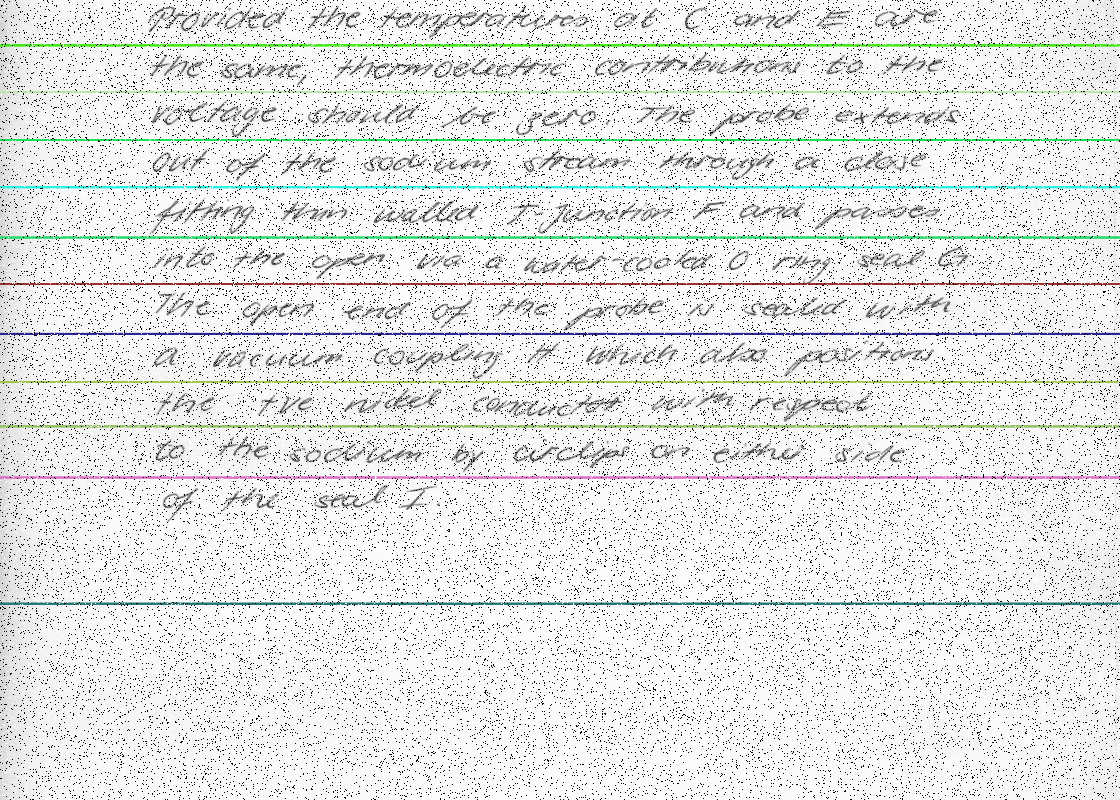 Provided the temperatures at C and E are
the same, thermoelectric contributions to the
voltage should be zero The probe extends
out of the sodium stream through a close
fitting thin walled T-junction F and passes
into the open via a water-cooled O ring seal G
The open end of the probe is sealed with
a vacuum coupling H which also positions
the +ve nickel conductor with respect
to the sodium by circlips on either side
of the seal I